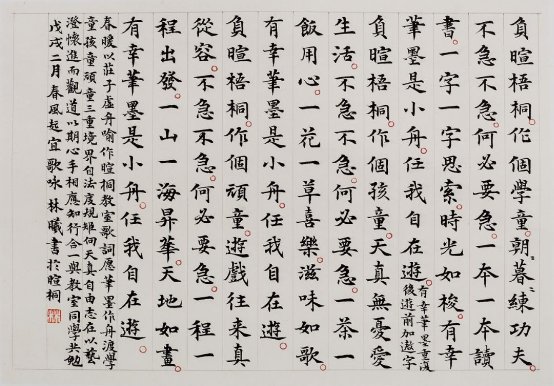 負暄梧桐作個學童朝暮練功夫
不急不急何必要急一本一本讀
書一字一字思索時光如梭有幸
筆墨是小舟任我自在遊
有幸筆墨重複
後遊前加遨字
負暄梧桐作個孩童天真無憂愛
生活不急不急何必要急一茶一
飯用心一花一草喜樂滋味如歌
有幸筆墨是小舟任我自在遊
負暄梧桐作個頑童遊戲往來真
從容不急不急何必要急一程一
程出發一山一海昇華天地如畫
有幸筆墨是小舟任我自在遊
春暖以莊子虛舟喻作暄桐教室歌詞應筆墨作舟渡學
童孩童頑童三重境界自法度規矩向天真自由志在以藝
澄懷進而觀道以期心手相應知行合一與教室同學共勉
戊戌二月春風起宜歌咏林曦書於暄桐